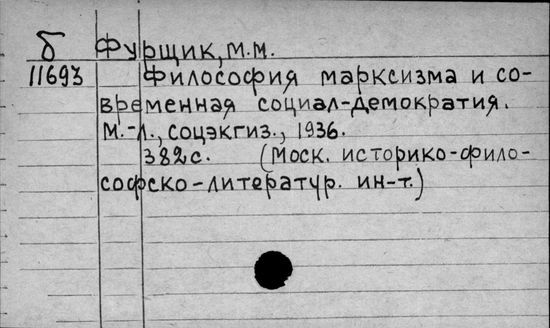 б Фурщик, м.м.
11693 Философия марксизма и со-
временная социал-демократия.
м.-л., соцэкгиз., 1936.
382с. (Моск. историко-фило-
софско-литератур. ин-т.)